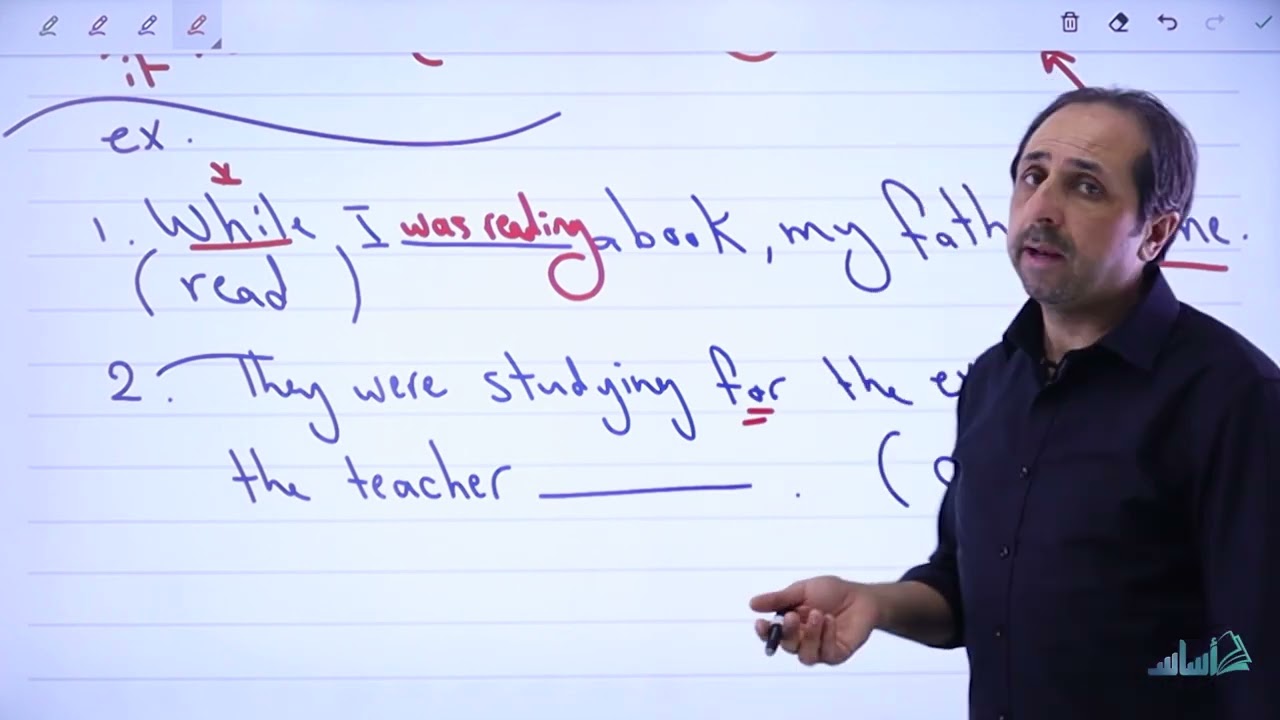 it
ex.
1. While I was reading a book, my fath ne.
(read)
2. They were studying for the ex
the teacher ______ . (
أساس